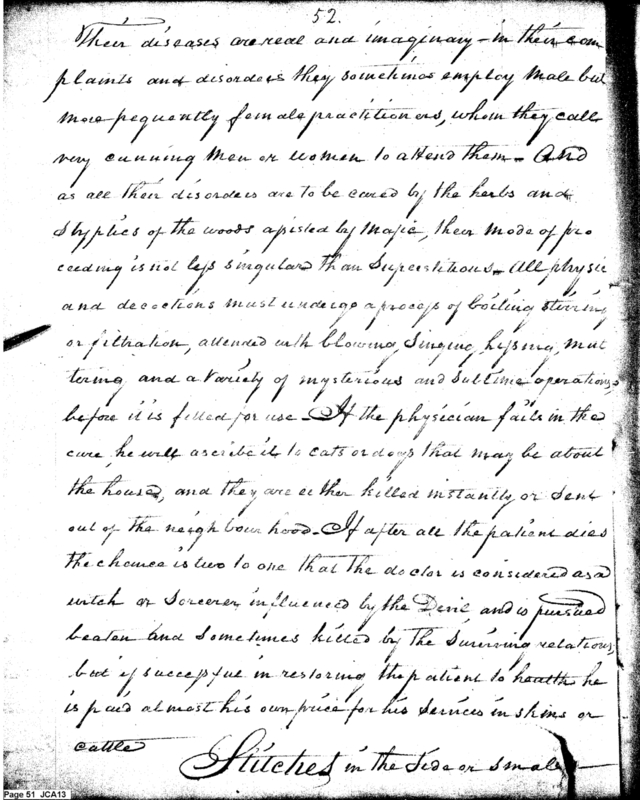 52.
Their diseases are real and imaginary - in their com
plaints and disorders they sometimes employ male but
more frequently female practitioners, whom they call
very cunning men or women to attend them - And
as all their disorders are to be cured by the herbs and
Styptics of the woods assisted by Magic, their mode of pro
ceeding is not less singular than Superstitious - All physic
and decoctions must undergo a process of boiling stirring
or filtration, attended with blowing, Singing, hissing, mut
tering and a variety of mysterious and sublime operations,
before it is filled for use - If the physician fails in the
cure, he will ascribe it to cats or dogs that may be about
the house, and they are either killed instantly or sent
out of the neighbour hood - If after all the patient dies
the chance is two to one that the doctor is considered as a
witch or Sorcerer influenced by the Devil and is pursued
beaten and sometimes killed by the Surviving relations,
but if successful in restoring the patient to health he
is paid almost his own price for his services in skins or
cattle
Stitches in the Side or small
Page 51 JCA13